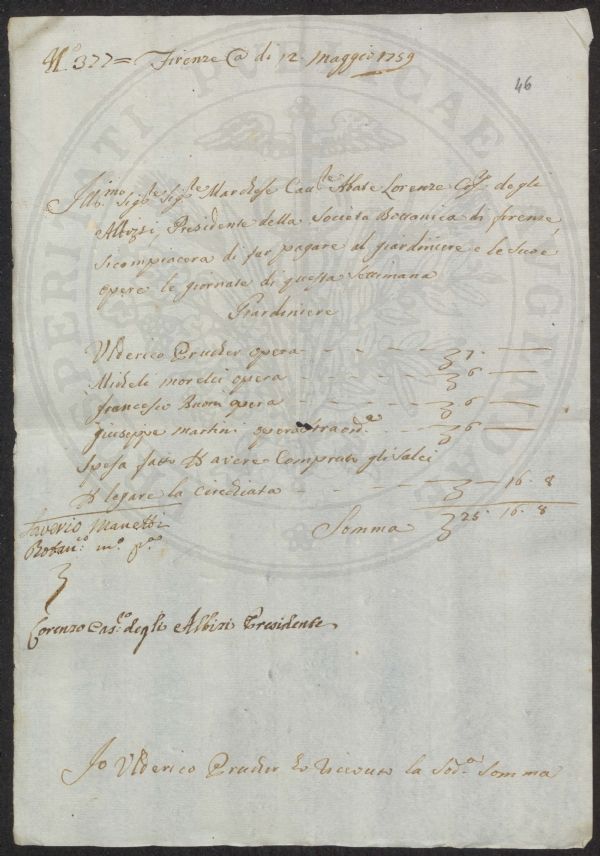 N.º 377= Firenze @ di 12 Maggio 1759
46
Ill.mo Sig.re Sig.re Marchese Cav.re Abate Lorenzo degli
Albizzi, Presidente della Societa Bottanica di firenze,
si compiacera di far pagare al giardiniere e le sue
opere le giornate di questa settimana
Giardiniere
Ulderico Prucker opera - - - - 7. —
Micheli morelci opera - - - - 6 —
francesco Buoni opera - - - - 6 —
Giuseppe Martini opera straord.a - - 6 —
Spesa fatto D avere Comprato gli salci
D legare la Cerchiata - - - - — 16. 8
Saverio Manetti
Botan.co m.o p.o
Somma 25. 16. 8
Lorenzo Cas.o degli Albizi Presidente
Io Ulderico Prucker ho riceuuto la Sod.a Somma
PROSPERITATI PUBLICAE AUGENDAE